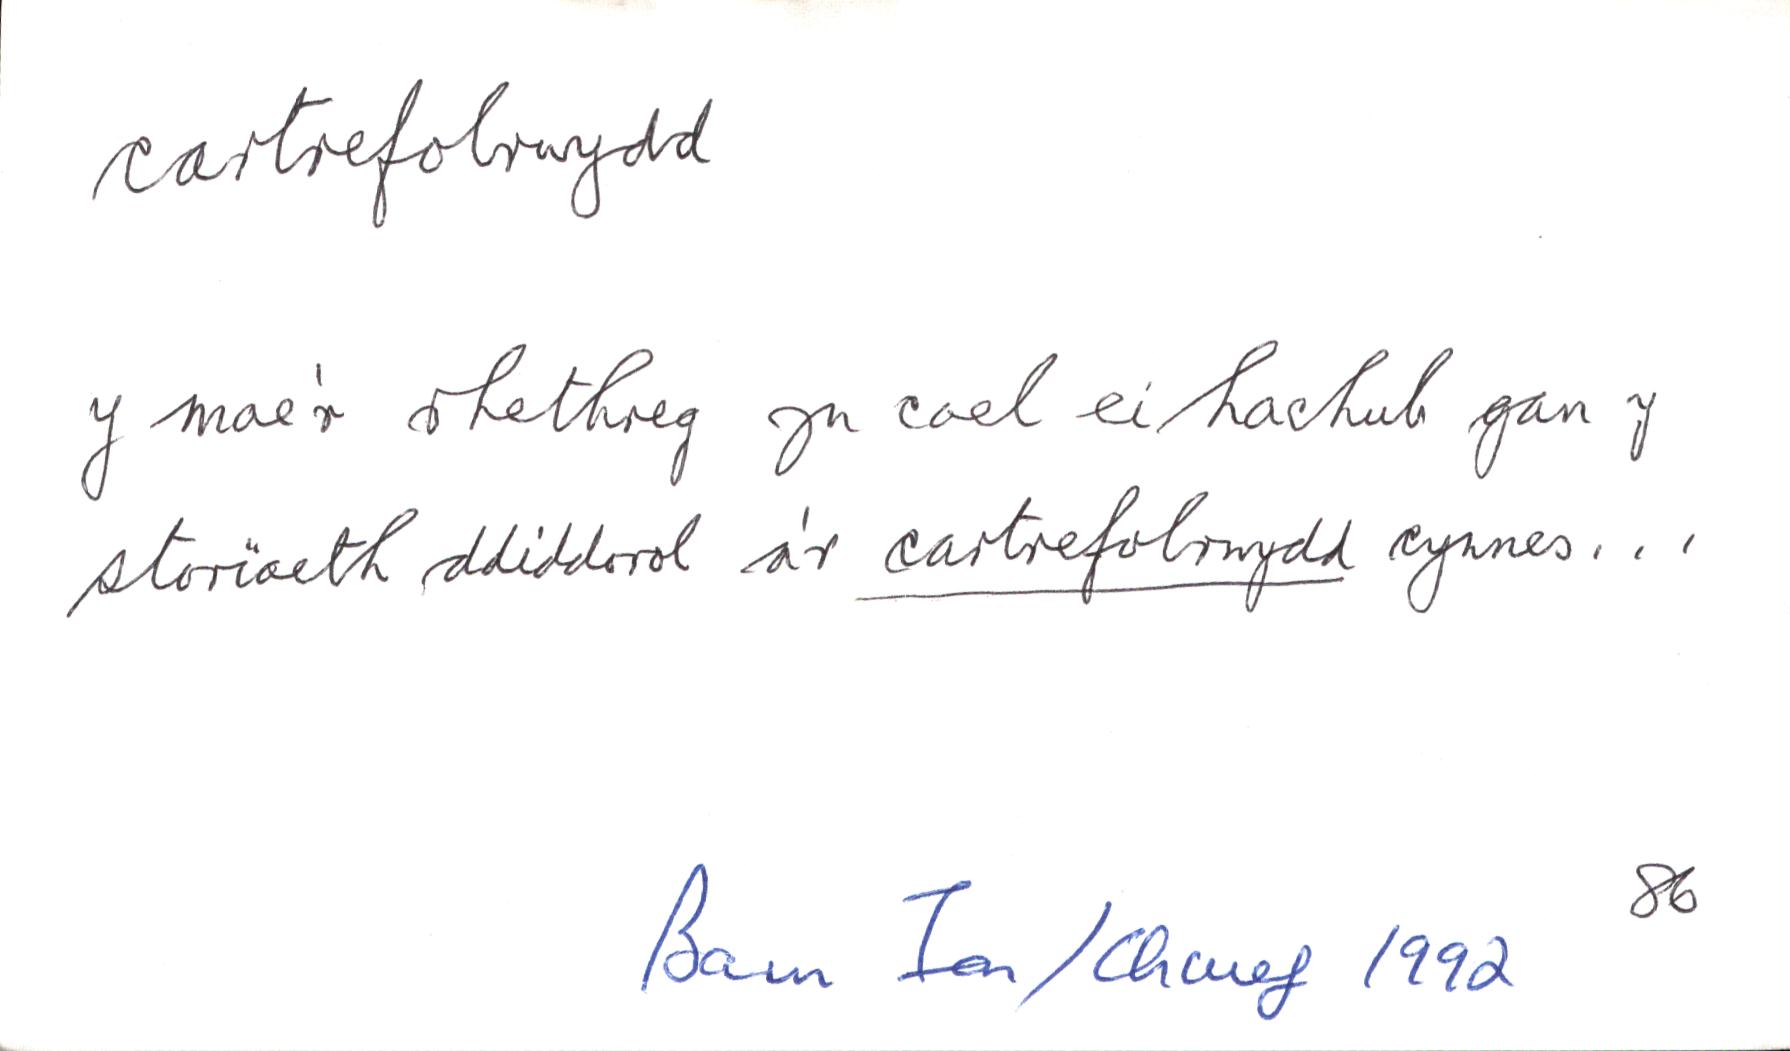 cartrefolrwydd
y mae'r rhethreg yn cael ei hachub gan y
storïaeth ddiddorol a'r cartrefolrwydd cynnes...
86
Barn Ion/Chwef 1992